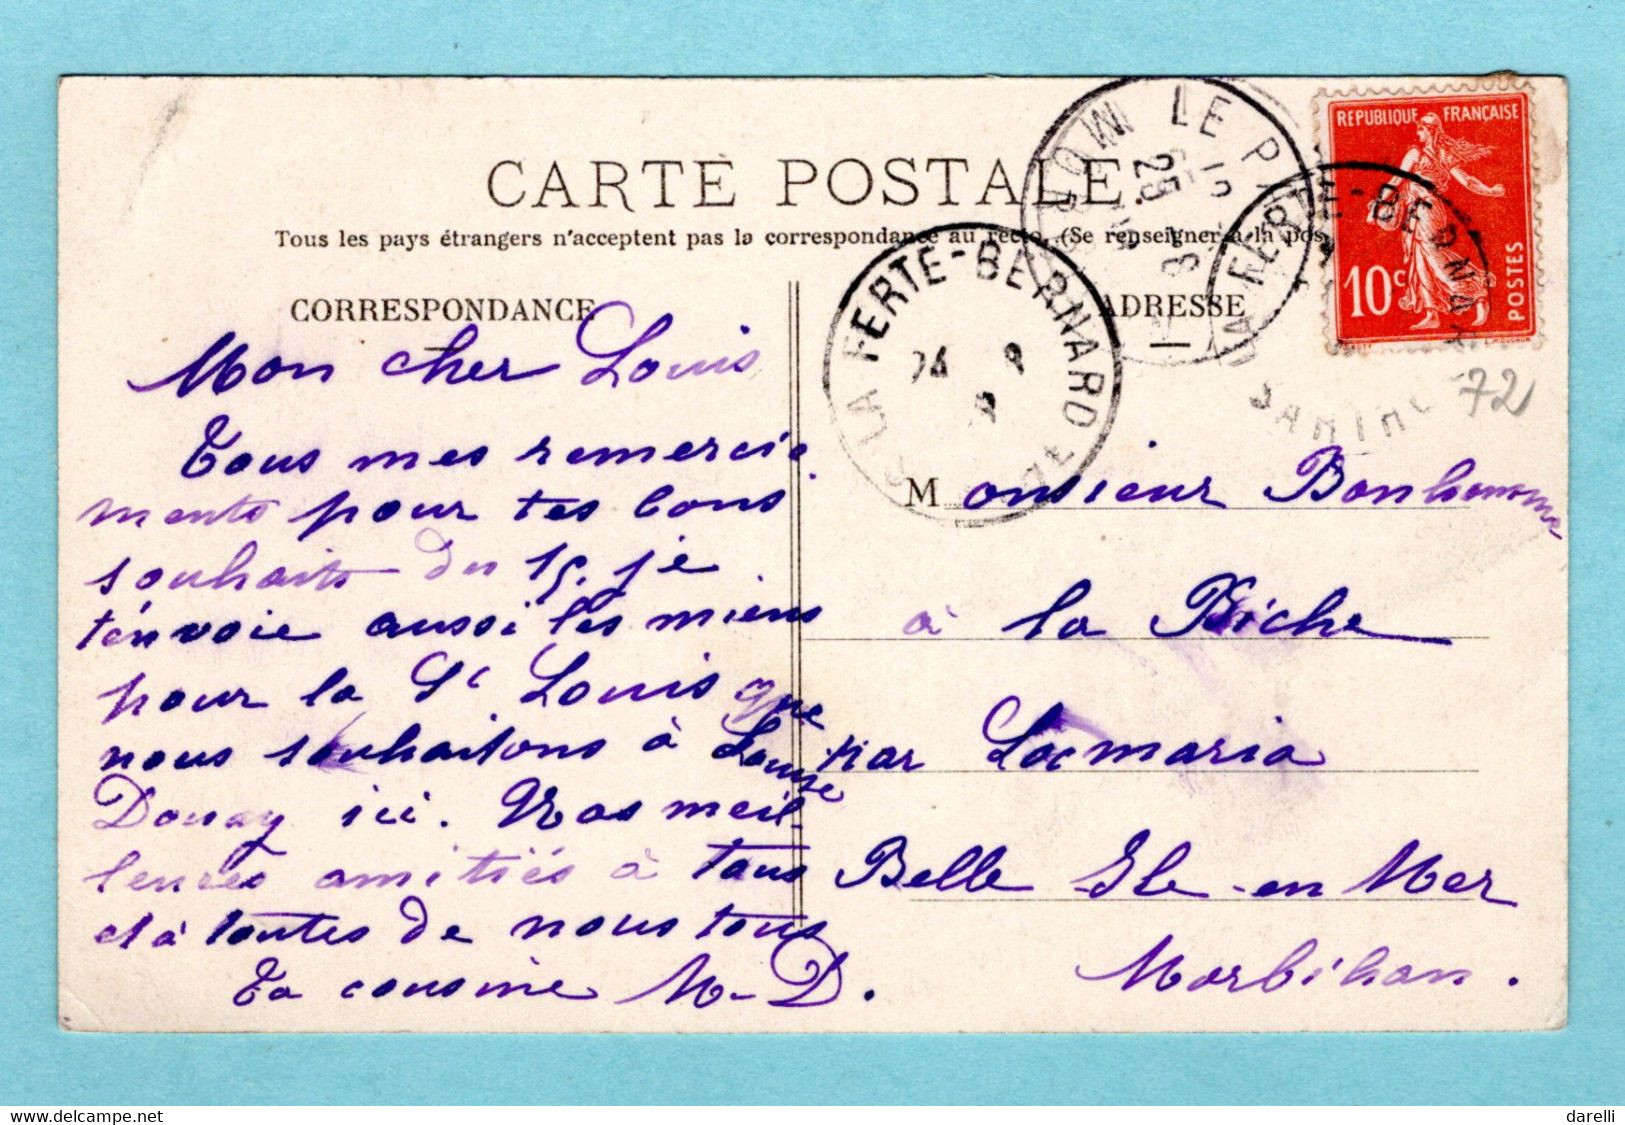 CARTE POSTALE.
Tous les pays étrangers n'acceptent pas la correspondance au recto. (Se renseigner à la pos
CORRESPONDANCE
ADRESSE
REPUBLIQUE FRANÇAISE
10c
POSTES
LE PA
25
LA FERTE-BERNARD
24 8
LA FERTE-BERNARD
SARTHE
72
Mon cher Louis
Tous mes remercie
ments pour tes bons
souhaits du 15. je
t'envoie aussi les miens
pour la St Louis que
nous souhaitons à Louise
Douay ici. Nos meil-
leures amitiés à tous
et à toutes de nous tous
Ta cousine M-D.
Monsieur Bonhomme
à la Biche
par Locmaria
Belle Ile-en Mer
Morbihan.
delcampe.net
darelli